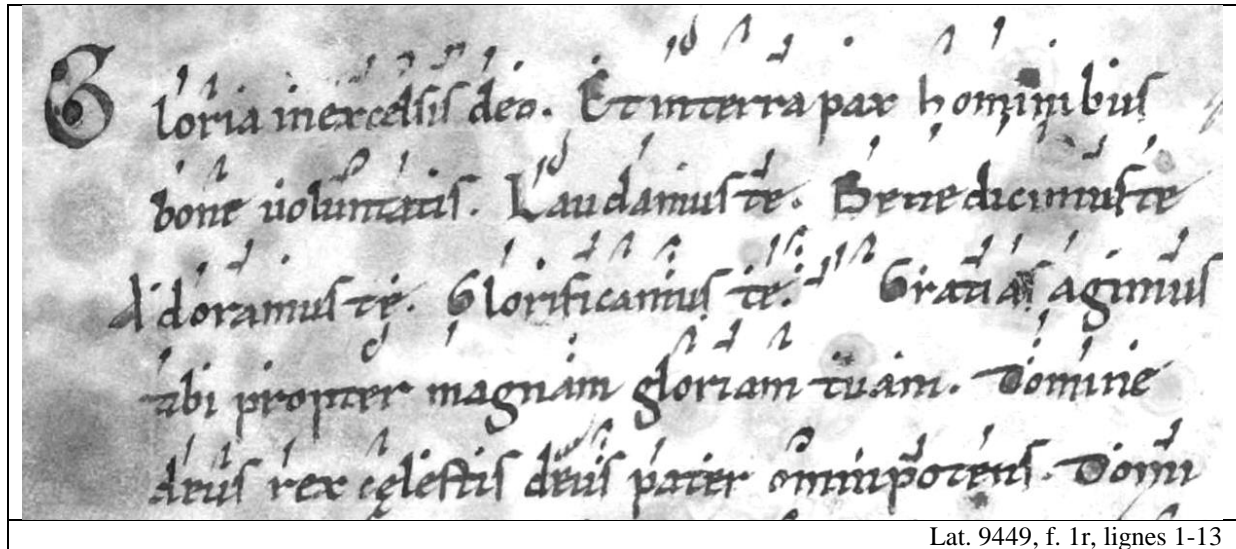 Gloria in excelsis deo. Et in terra pax hominibus
bone uoluntatis. Laudamus te. Benedicimus te
Adoramus te. Glorificamus te. Gratias agimus
tibi propter magnam gloriam tuam. Domine
deus rex cęlestis deus pater omnipotens. Domi
Lat. 9449, f. 1r, lignes 1-13